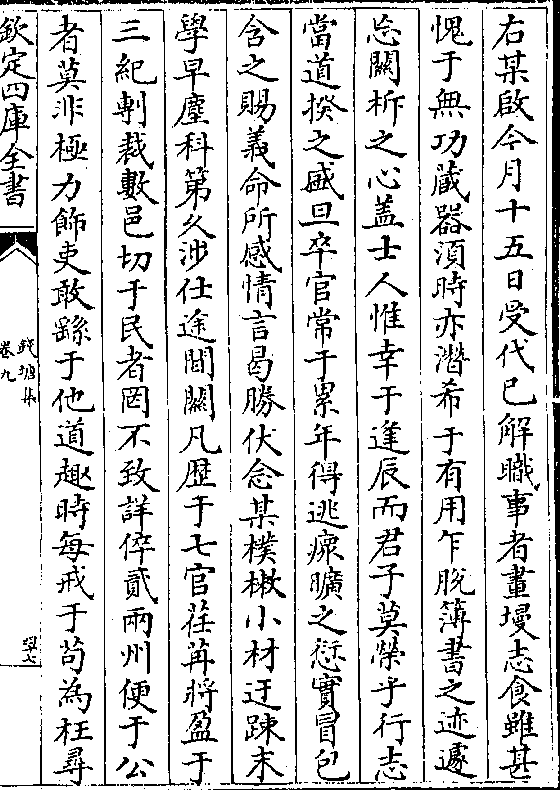 右某啟今月十五日受代已解職事者畫墁志食雖甚
愧于無功藏器須時亦潛希于有用乍脫簿書之迹遽
忘關柝之心葢士人惟幸于逢辰而君子莫榮乎行志
當道揆之盛旦卒官常于累年得逃瘝曠之愆實冒包
含之賜義命所感情言曷勝伏念某樸樕小材迂踈末
學早塵科第久涉仕途間關凡歴于七官荏苒將盈于
三紀剸裁數邑切于民者罔不致詳倅貳兩州便于公
者莫非極力飾吏敢繇于他道趣時每戒于茍為枉尋
欽定四庫全書
錢塘集
卷九